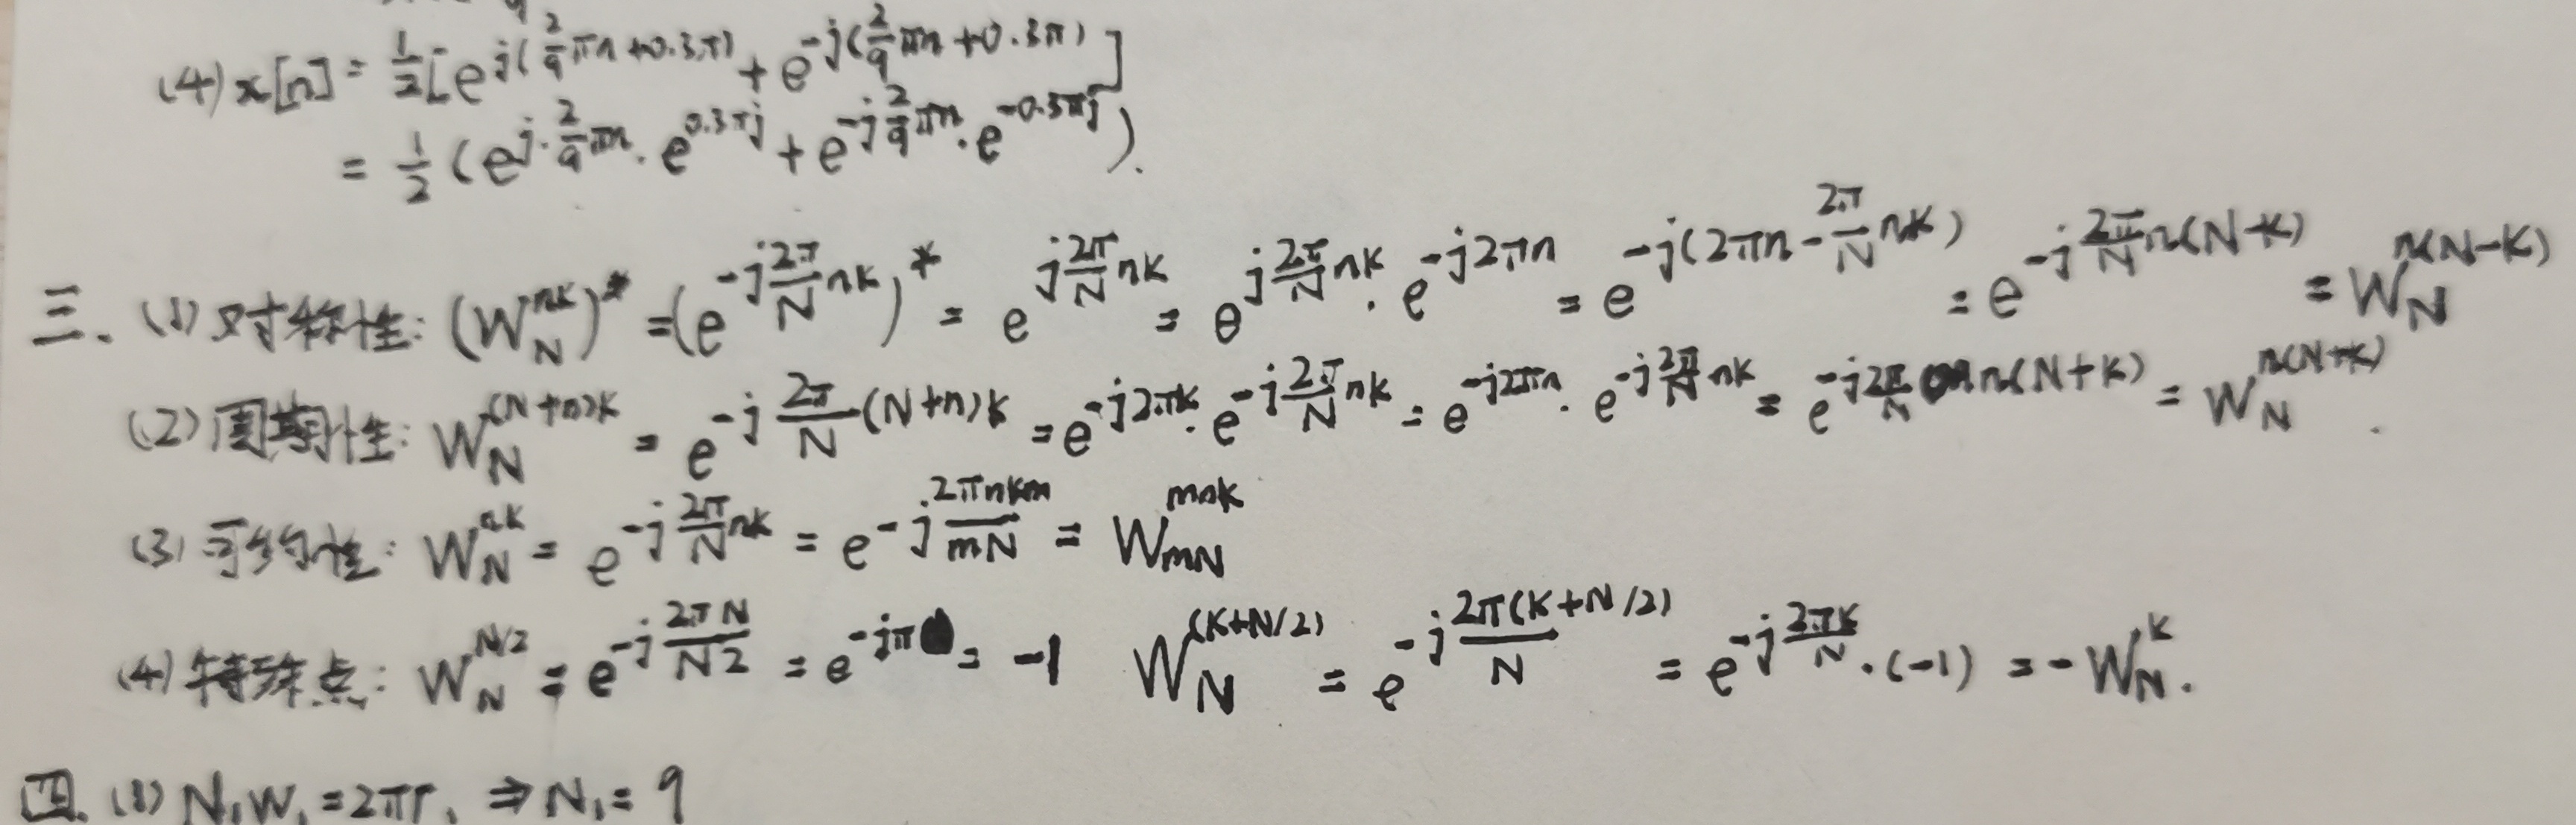 (4) x[n] = 1/2 [e^{j(2/9 πn+0.3π)} + e^{-j(2/9 πn+0.3π)}]
= 1/2 (e^{j·2/9 πn} · e^{0.3πj} + e^{-j 2/9 πn} · e^{-0.3πj}).
三. (1) 对称性: (W_N^{nk})^* = (e^{-j 2π/N nk})^* = e^{j 2π/N nk} = e^{j 2π/N nk} · e^{-j2πn} = e^{-j(2πn - 2π/N nk)} = e^{-j 2π/N n(N-k)} = W_N^{n(N-k)}
(2) 周期性: W_N^{(N+n)k} = e^{-j 2π/N (N+n)k} = e^{-j2πk} · e^{-j 2π/N nk} = e^{-j2πn} · e^{-j 2π/N nk} = e^{-j 2π/N n(N+k)} = W_N^{n(N+k)}.
(3) 可约性: W_N^{nk} = e^{-j 2π/N nk} = e^{-j 2πnkm/mN} = W_{mN}^{mnk}
(4) 特殊点: W_N^{N/2} = e^{-j 2πN/N2} = e^{-jπ} = -1 W_N^{(k+N/2)} = e^{-j 2π(k+N/2)/N} = e^{-j 2πk/N} · (-1) = -W_N^k.
四. (1) N₁W₁=2πr₁ ⇒ N₁=9